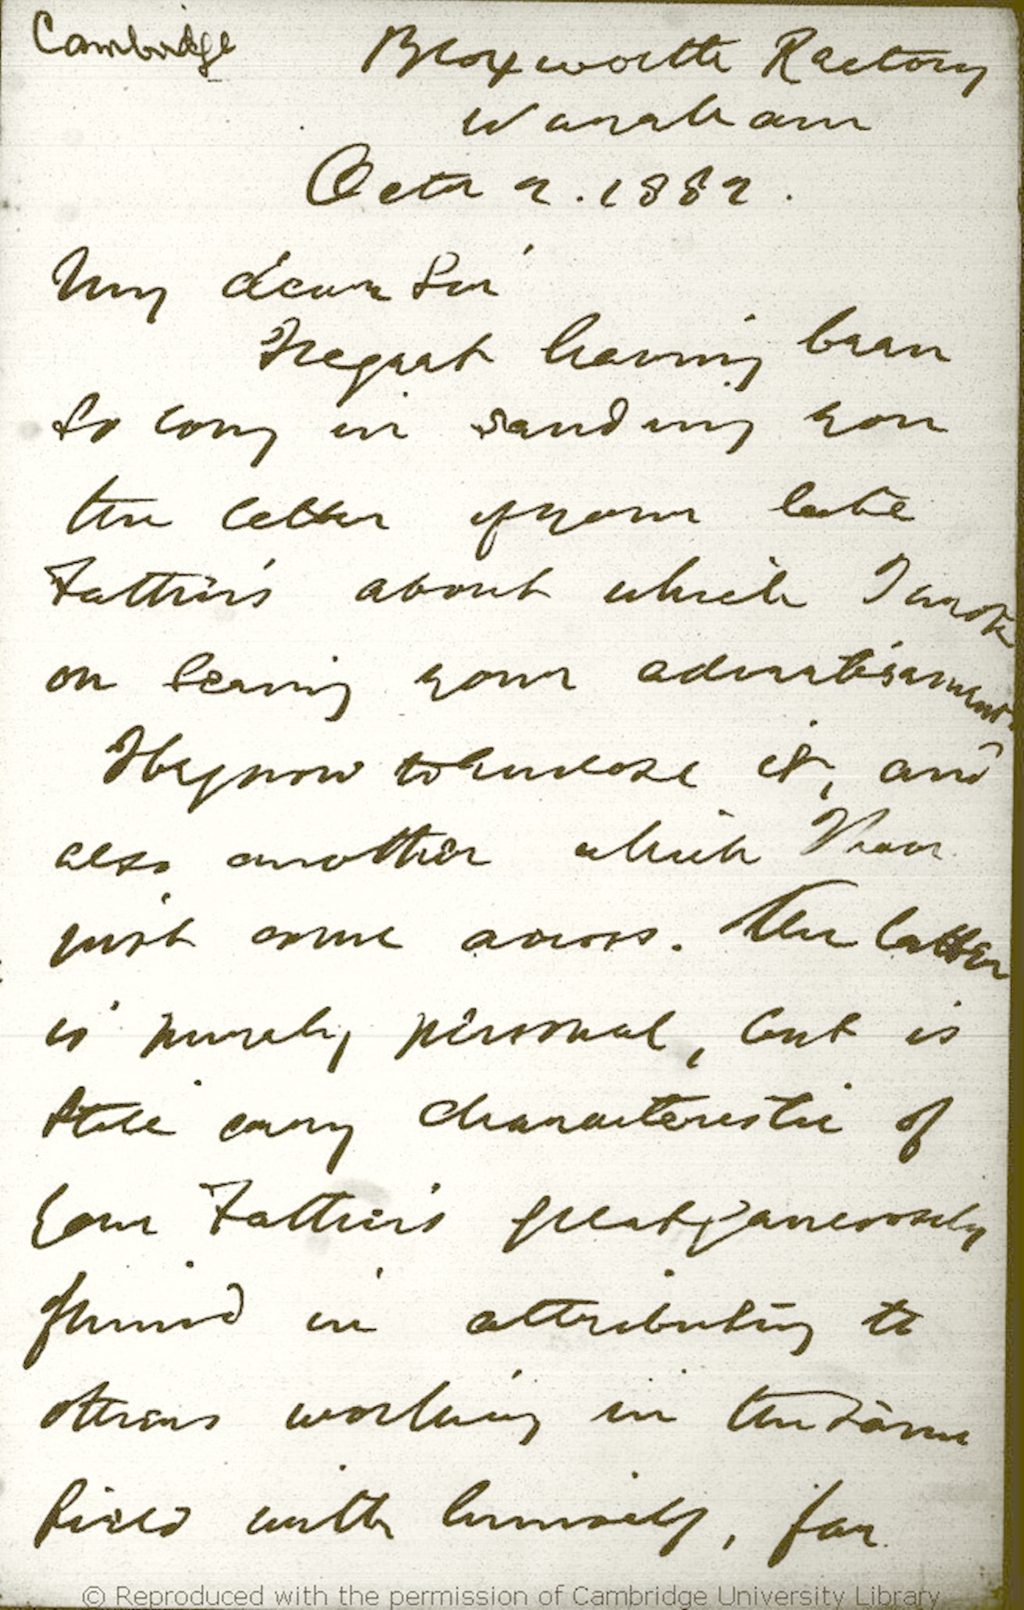 Cambridge
Bloxworth Rectory
Wareham
Octr 2. 1882.
My dear Sir
I regret having been
so long in sending you
the letter of your late
Father's about which I wrote
on seeing your advertisement.
I beg now to enclose it, and
also another which I have
just come across. The latter
is purely personal, but is
still very characteristic of
your Father's great generosity
of mind in attributing to
others working in the same
field with himself, far
© Reproduced with the permission of Cambridge University Library